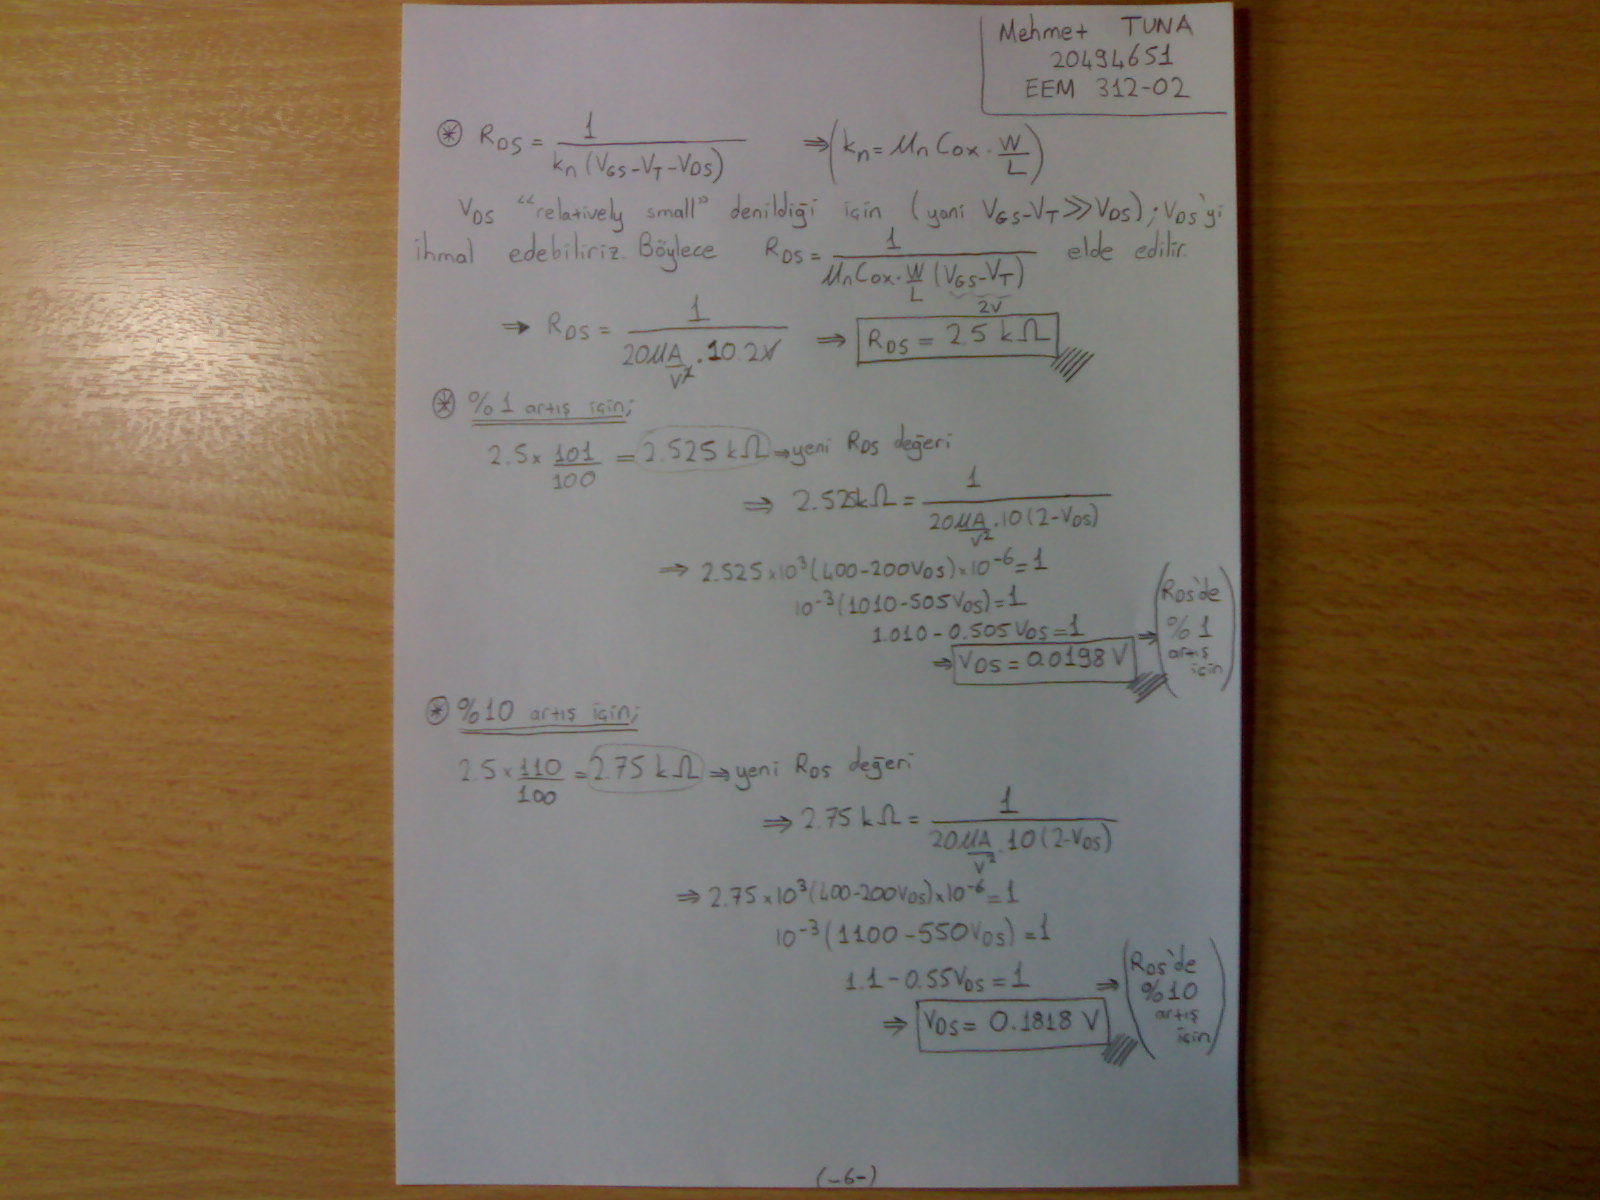 Mehmet TUNA
20494651
EEM 312-02
⊛ R_DS = 1 / (k_n (V_GS - V_T - V_DS)) ⇒ (k_n = μ_n Cox · W/L)
V_DS "relatively small" denildiği için (yani V_GS - V_T >> V_DS); V_DS'yi
ihmal edebiliriz. Böylece R_DS = 1 / (μ_n Cox · W/L (V_GS - V_T)) elde edilir.
2V
⇒ R_DS = 1 / (20 μA/V² · 10 · 2V) ⇒ R_DS = 2.5 kΩ
⊛ %1 artış için;
2.5 × 101/100 = 2.525 kΩ ⇒ yeni R_DS değeri
⇒ 2.525kΩ = 1 / (20 μA/V² · 10 (2 - V_DS))
⇒ 2.525 × 10³ (400 - 200V_DS) × 10⁻⁶ = 1
10⁻³ (1010 - 505V_DS) = 1
1.010 - 0.505 V_DS = 1
⇒ V_DS = 0.0198 V ⇒ (R_DS'de %1 artış için)
⊛ %10 artış için;
2.5 × 110/100 = 2.75 kΩ ⇒ yeni R_DS değeri
⇒ 2.75 kΩ = 1 / (20 μA/V² · 10 (2 - V_DS))
⇒ 2.75 × 10³ (400 - 200V_DS) × 10⁻⁶ = 1
10⁻³ (1100 - 550V_DS) = 1
1.1 - 0.55V_DS = 1
⇒ V_DS = 0.1818 V ⇒ (R_DS'de %10 artış için)
(-6-)